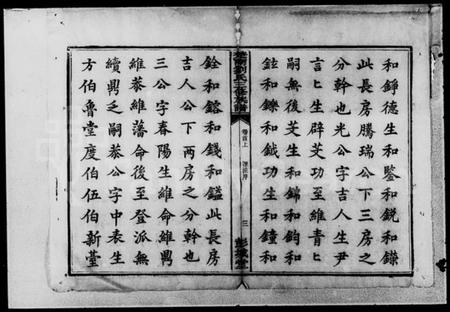 和錚德生和鋻和銳和鑅
此長房騰瑞公下三房之
分幹也光公字吉人生尹
言匕生辟芠功至維青匕
嗣無後芠生和錦和鉤和
鉉和鑠和鉞功生和鐘和
劉氏三修族譜
卷首上
三
彭城堂
銓和鎔和錢和鎰此長房
吉人公下兩房之分幹也
三公字春陽生維命維興
維泰維藩命後至登派無
續興之嗣恭公字中表生
方伯魯堂度伯伍伯新薹